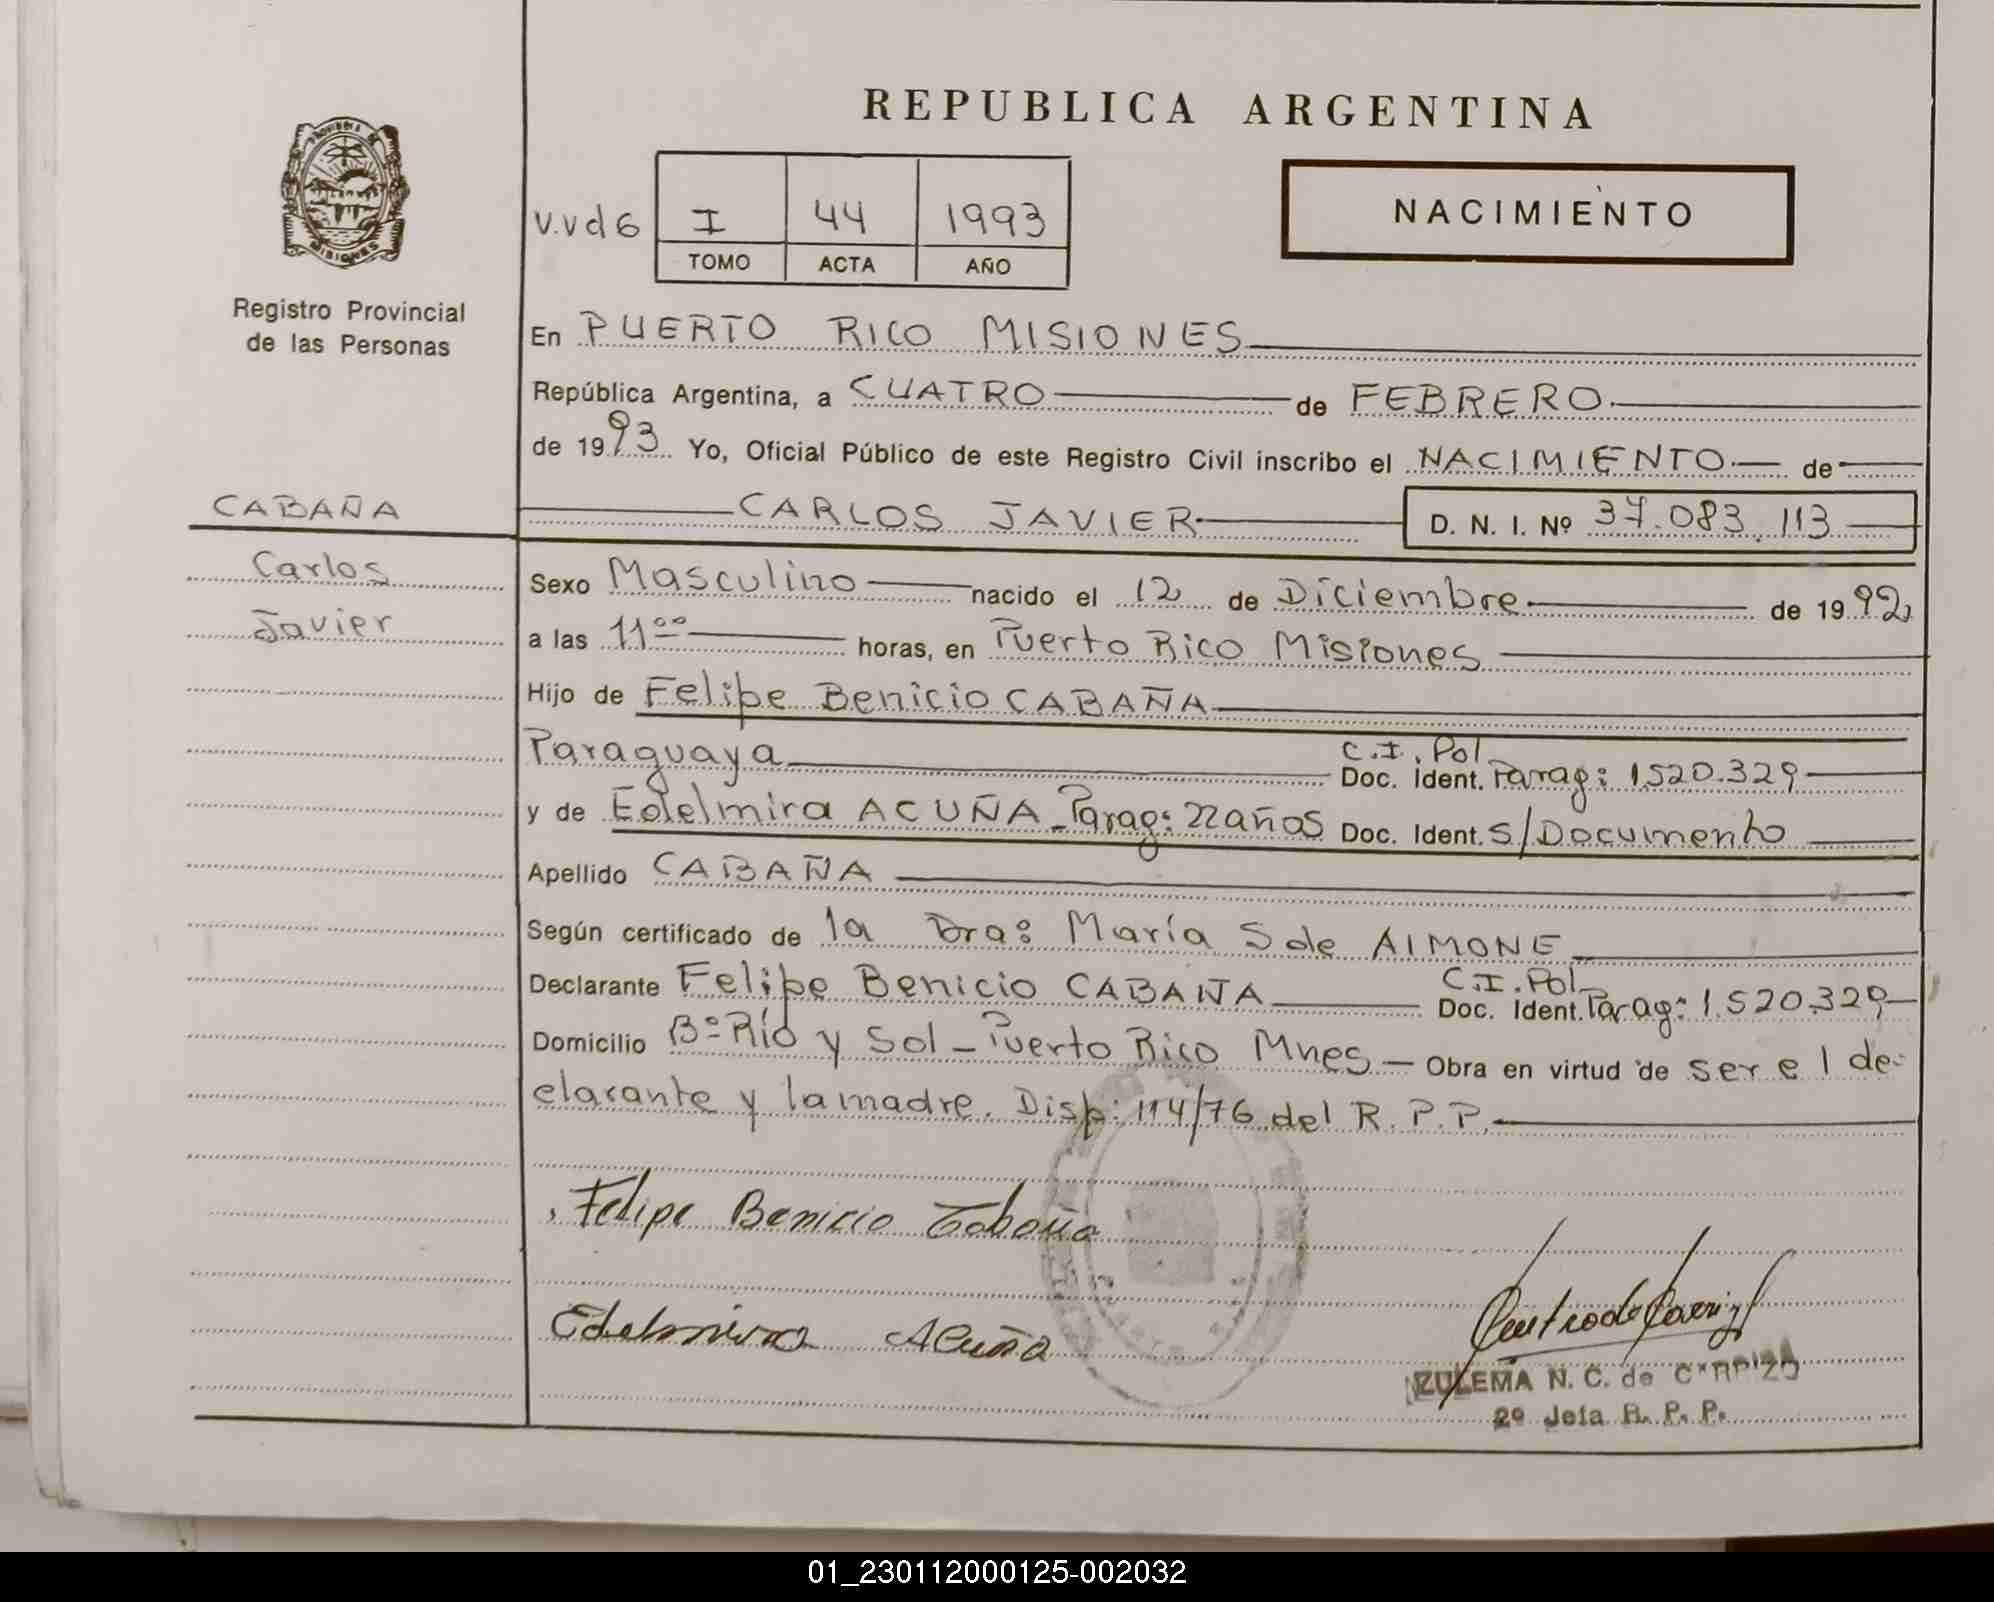 REPUBLICA ARGENTINA
PROVINCIA DE
MISIONES
Registro Provincial
de las Personas
V.Vd6
I 44 1993
TOMO ACTA AÑO
NACIMIENTO
En PUERTO RICO MISIONES
República Argentina, a CUATRO de FEBRERO
de 1993 Yo, Oficial Público de este Registro Civil inscribo el NACIMIENTO de
CABAÑA
CARLOS JAVIER D. N. I. Nº 37.083.113
Carlos
Javier
Sexo Masculino nacido el 12 de Diciembre de 1992
a las 11 00 horas, en Puerto Rico Misiones
Hijo de Felipe Benicio CABAÑA
Paraguaya C.I. Pol Doc. Ident. Parag: 1.520.329
y de Edelmira ACUÑA - Parag: 22 años Doc. Ident. S/Documento
Apellido CABAÑA
Según certificado de la Dra: María S de AIMONE
Declarante Felipe Benicio CABAÑA C.I. Pol Doc. Ident. Parag: 1.520.329
Domicilio Bº Río y Sol - Puerto Rico Mnes - Obra en virtud de ser el de-
clarante y la madre. Disp: 114/76 del R.P.P.
Felipe Benicio Cabaña
Edelmira Acuña
ZULEMA N. C. de
2º Jefa R. P. P.
01_230112000125-002032